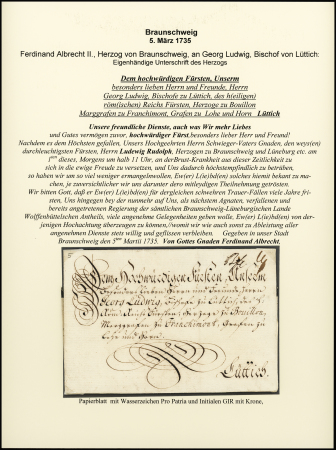 Braunschweig
5. März 1735
Ferdinand Albrecht II., Herzog von Braunschweig, an Georg Ludwig, Bischof von Lüttich:
Eigenhändige Unterschrift des Herzogs
Dem hochwürdigen Fürsten, Unserm
besonders lieben Herrn und Freunde, Herrn
Georg Ludwig, Bischofe zu Lüttich, des h(eiligen)
röm(ischen) Reichs Fürsten, Herzoge zu Bouillon
Marggrafen zu Franchimont, Grafen zu Lohe und Horn Lüttich
Unsere freundliche Dienste, auch was Wir mehr Liebes
und Gutes vermögen zuvor, hochwürdiger Fürst, besonders lieber Herr und Freund!
Nachdem es dem Höchsten gefallen, Unsern Hochgeehrten Herrn Schwieger-Vaters Gnaden, den wey(en)
durchlauchtigsten Fürsten, Herrn Ludewig Rudolph, Herzogen zu Braunschweig und Lüneburg etc. am
1sten dieses, Morgens um halb 11 Uhr, an der Brust-Krankheit aus dieser Zeitlichkeit zu
sich in die ewige Freude zu versetzen, und Uns dadurch höchstempfindlich zu betrüben,
so haben wir um so viel weniger ermangeln wollen, Ew(er) L(ie)b(den) solches hiemit bekant zu ma-
chen, je zuversichtlicher wir uns darunter dero mitleydigen Theilnehmung getrösten.
Wir bitten Gott, daß er Ew(er) L(ie)b(den) für dergleichen schwehren Trauer-Fällen viele Jahre fri-
sten, Uns hingegen bey der nunmehr auf Uns, als nächstem Agnaten, verfallenen und
bereits angetretenen Regierung der sämtlichen Braunschweig-Lüneburgischen Lande
Wolffenbüttelschen Antheils, viele angenehme Gelegenheiten geben wolle, Ew(er) L(ie)b(den) von der-
jenigen Hochachtung überzeugen zu können, womit wir wie auch sonst zu Ableistung aller
angenehmen Dienste stets willig und geflissen verbleiben. Gegeben in unser Stadt
Braunschweig den 5ten Martii 1735. Von Gottes Gnaden Ferdinand Albrecht.
Dem Hochwürdigen Fürsten, Unserm
besonders lieben Herrn und Freunde, Herrn
Georg Ludwig, Bischofe zu Lüttich, des h.
Röm. Reichs Fürsten, Herzoge zu Bouillon,
Marggrafen zu Franchimont, Grafen zu
Lohe und Horn
Lüttich.
Papierblatt mit Wasserzeichen Pro Patria und Initialen GIR mit Krone,